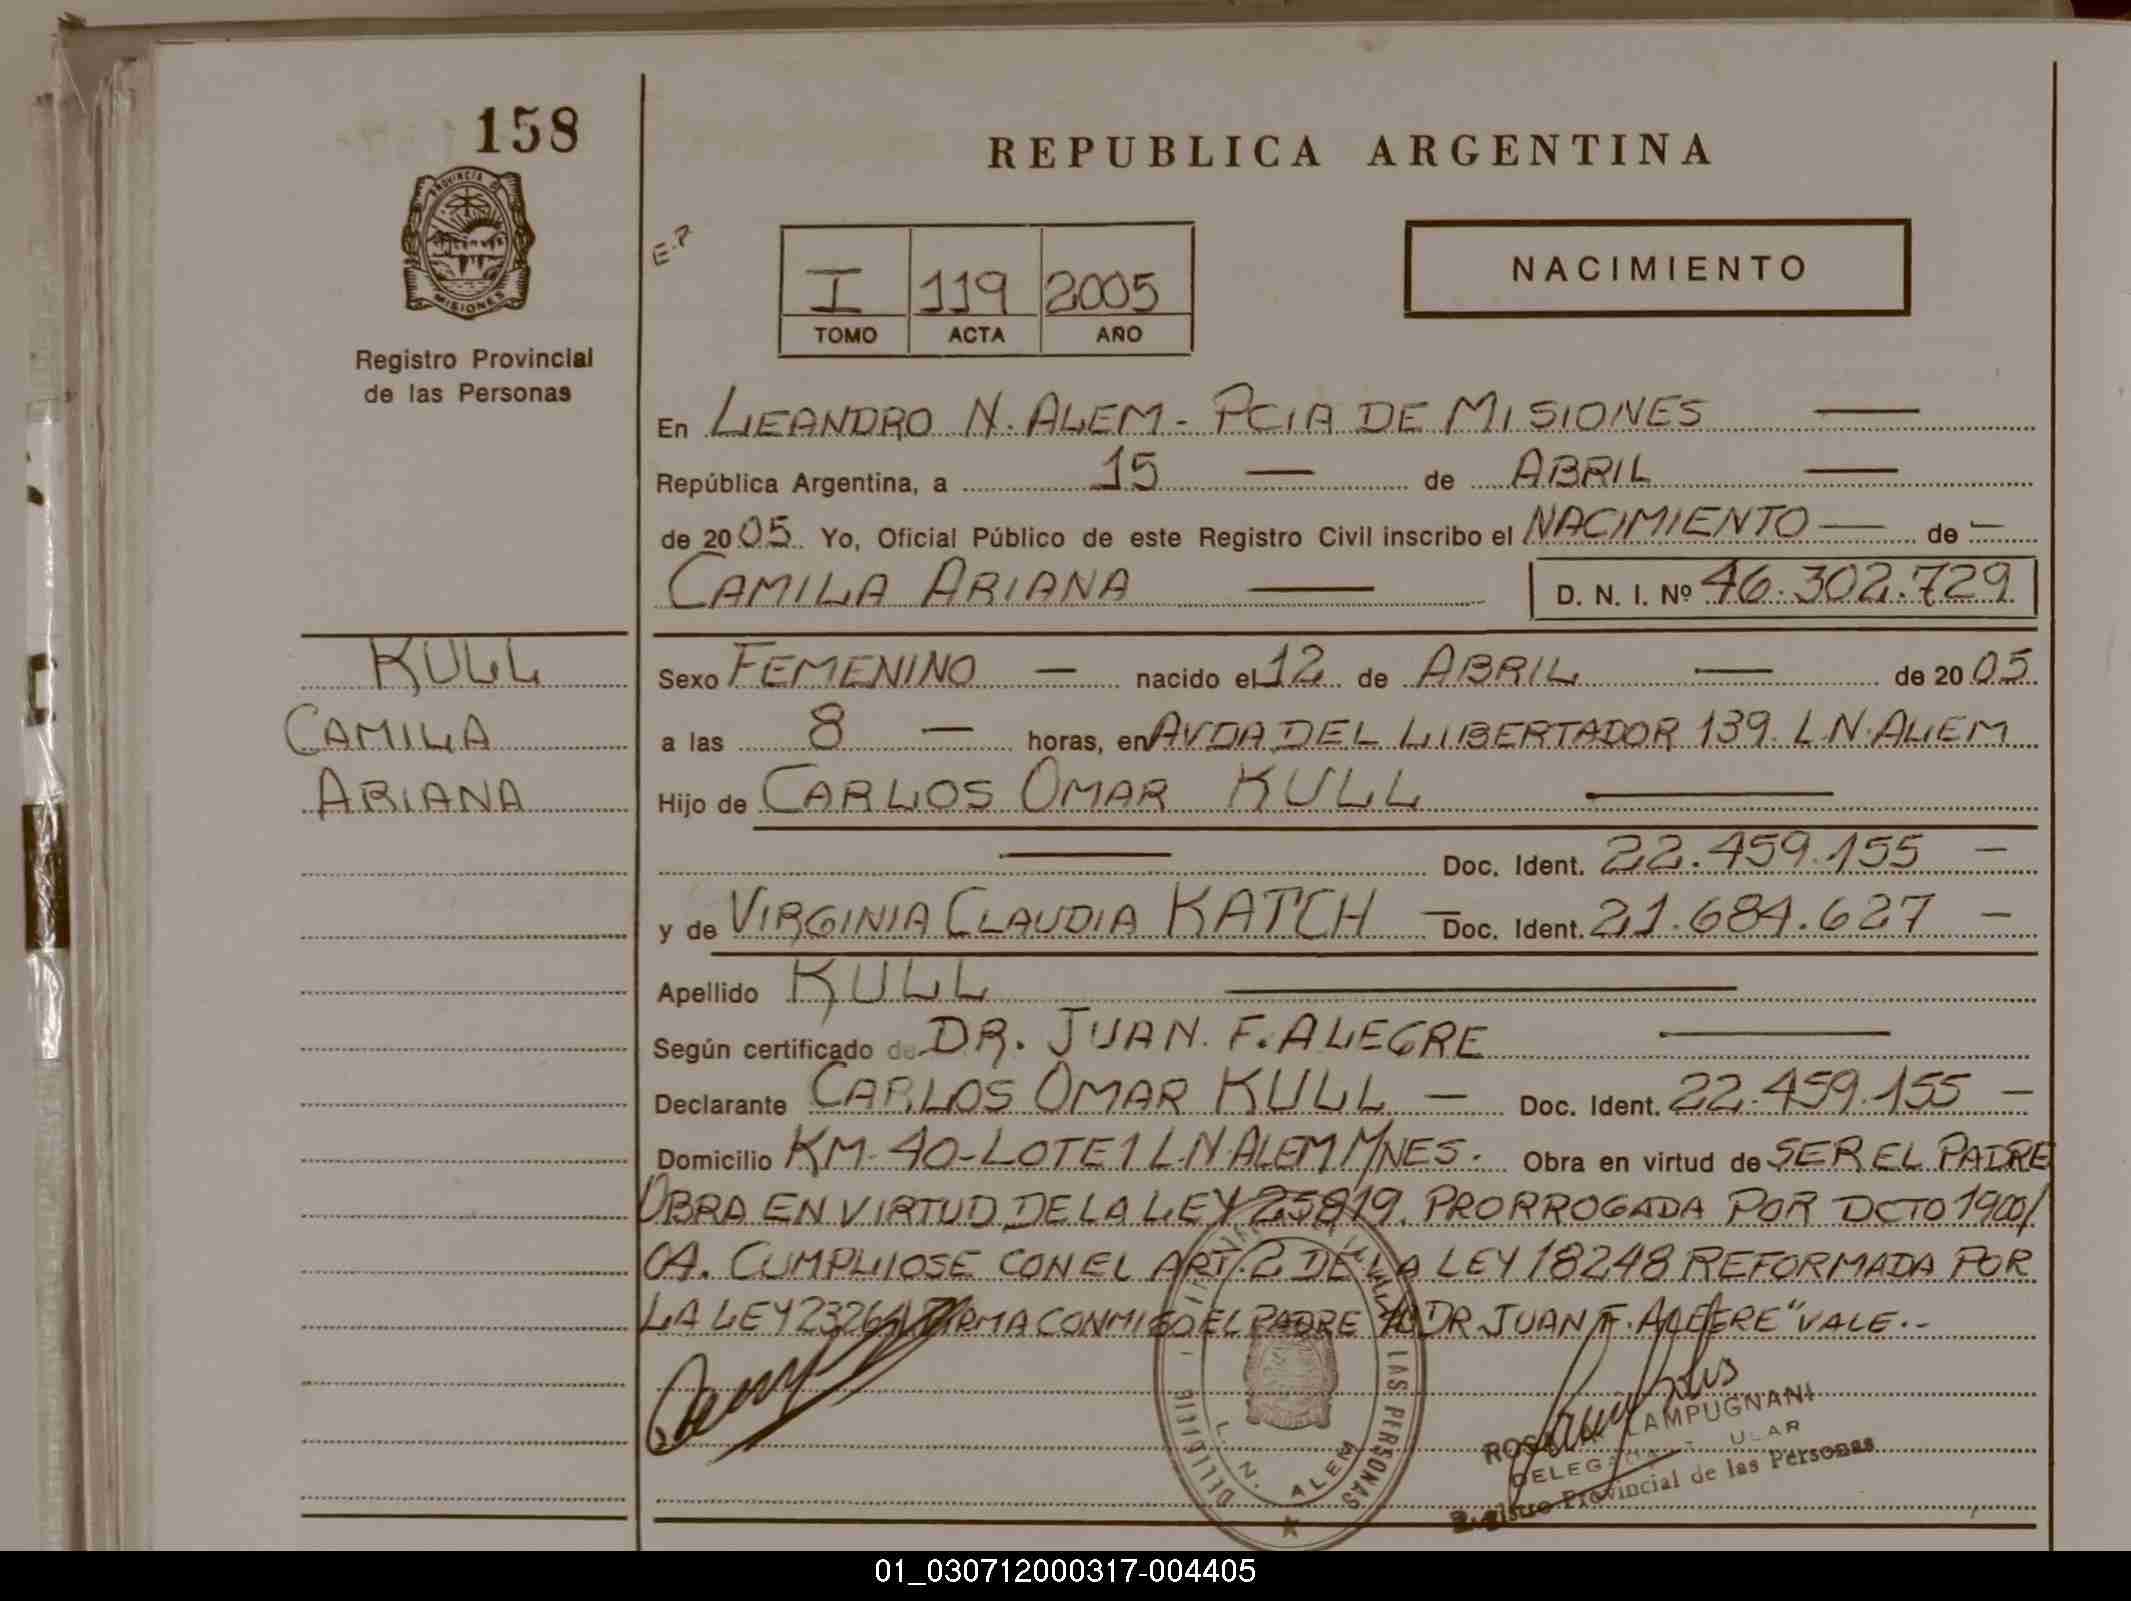 158
REPUBLICA ARGENTINA
PROVINCIA DE
MISIONES
Registro Provincial
de las Personas
E.P
I 119 2005
TOMO ACTA AÑO
NACIMIENTO
En LEANDRO N. ALEM - PCIA DE MISIONES
República Argentina, a 15 — de ABRIL —
de 2005. Yo, Oficial Público de este Registro Civil inscribo el NACIMIENTO — de —
CAMILA ARIANA — D. N. I. Nº 46.302.729
KULL
CAMILA
ARIANA
Sexo FEMENINO — nacido el 12 de ABRIL — de 2005.
a las 8 — horas, en AVDA DEL LIBERTADOR 139. L.N. ALEM
Hijo de CARLOS OMAR KULL —
— Doc. Ident. 22.459.155 —
y de VIRGINIA CLAUDIA KATCH — Doc. Ident. 21.684.627 —
Apellido KULL —
Según certificado de DR. JUAN F. ALEGRE —
Declarante CARLOS OMAR KULL — Doc. Ident. 22.459.155 —
Domicilio KM 40 - LOTE 1 L.N. ALEM MNES. Obra en virtud de SER EL PADRE
OBRA EN VIRTUD DE LA LEY 25819. PRORROGADA POR DCTO 1900/
04. CUMPLIOSE CON EL ART. 2 DE LA LEY 18248 REFORMADA POR
LA LEY 23264 FIRMA CONMIGO EL PADRE DR JUAN F. ALEGRE "VALE.-
LAS PERSONAS
L. N. ALEM
LAMPUGNANI
Registro Provincial de las Personas
01_030712000317-004405